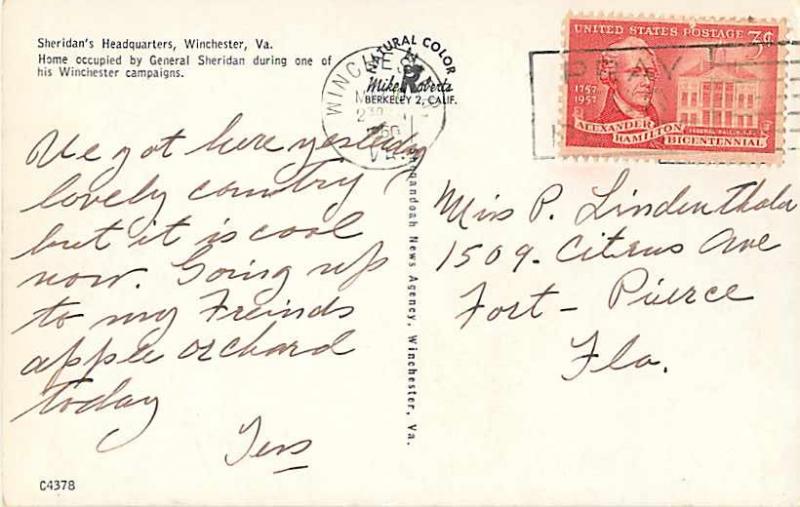 Sheridan's Headquarters, Winchester, Va.
Home occupied by General Sheridan during one of
his Winchester campaigns.
NATURAL COLOR
Mike Roberts
BERKELEY 2, CALIF.
WINCHESTER
1960
VA.
UNITED STATES POSTAGE 3¢
PRAY
1757
1957
ALEXANDER
HAMILTON
BICENTENNIAL
FEDERAL HALL, N.Y.C.
We got here yesterday
lovely country
but it is cool
now. Going up
to my Freinds
apple orchard
today
Shenandoah News Agency, Winchester, Va.
Miss P. Lindenthala
1509. Citrus Ave
Fort - Pierce
Fla.
C4378